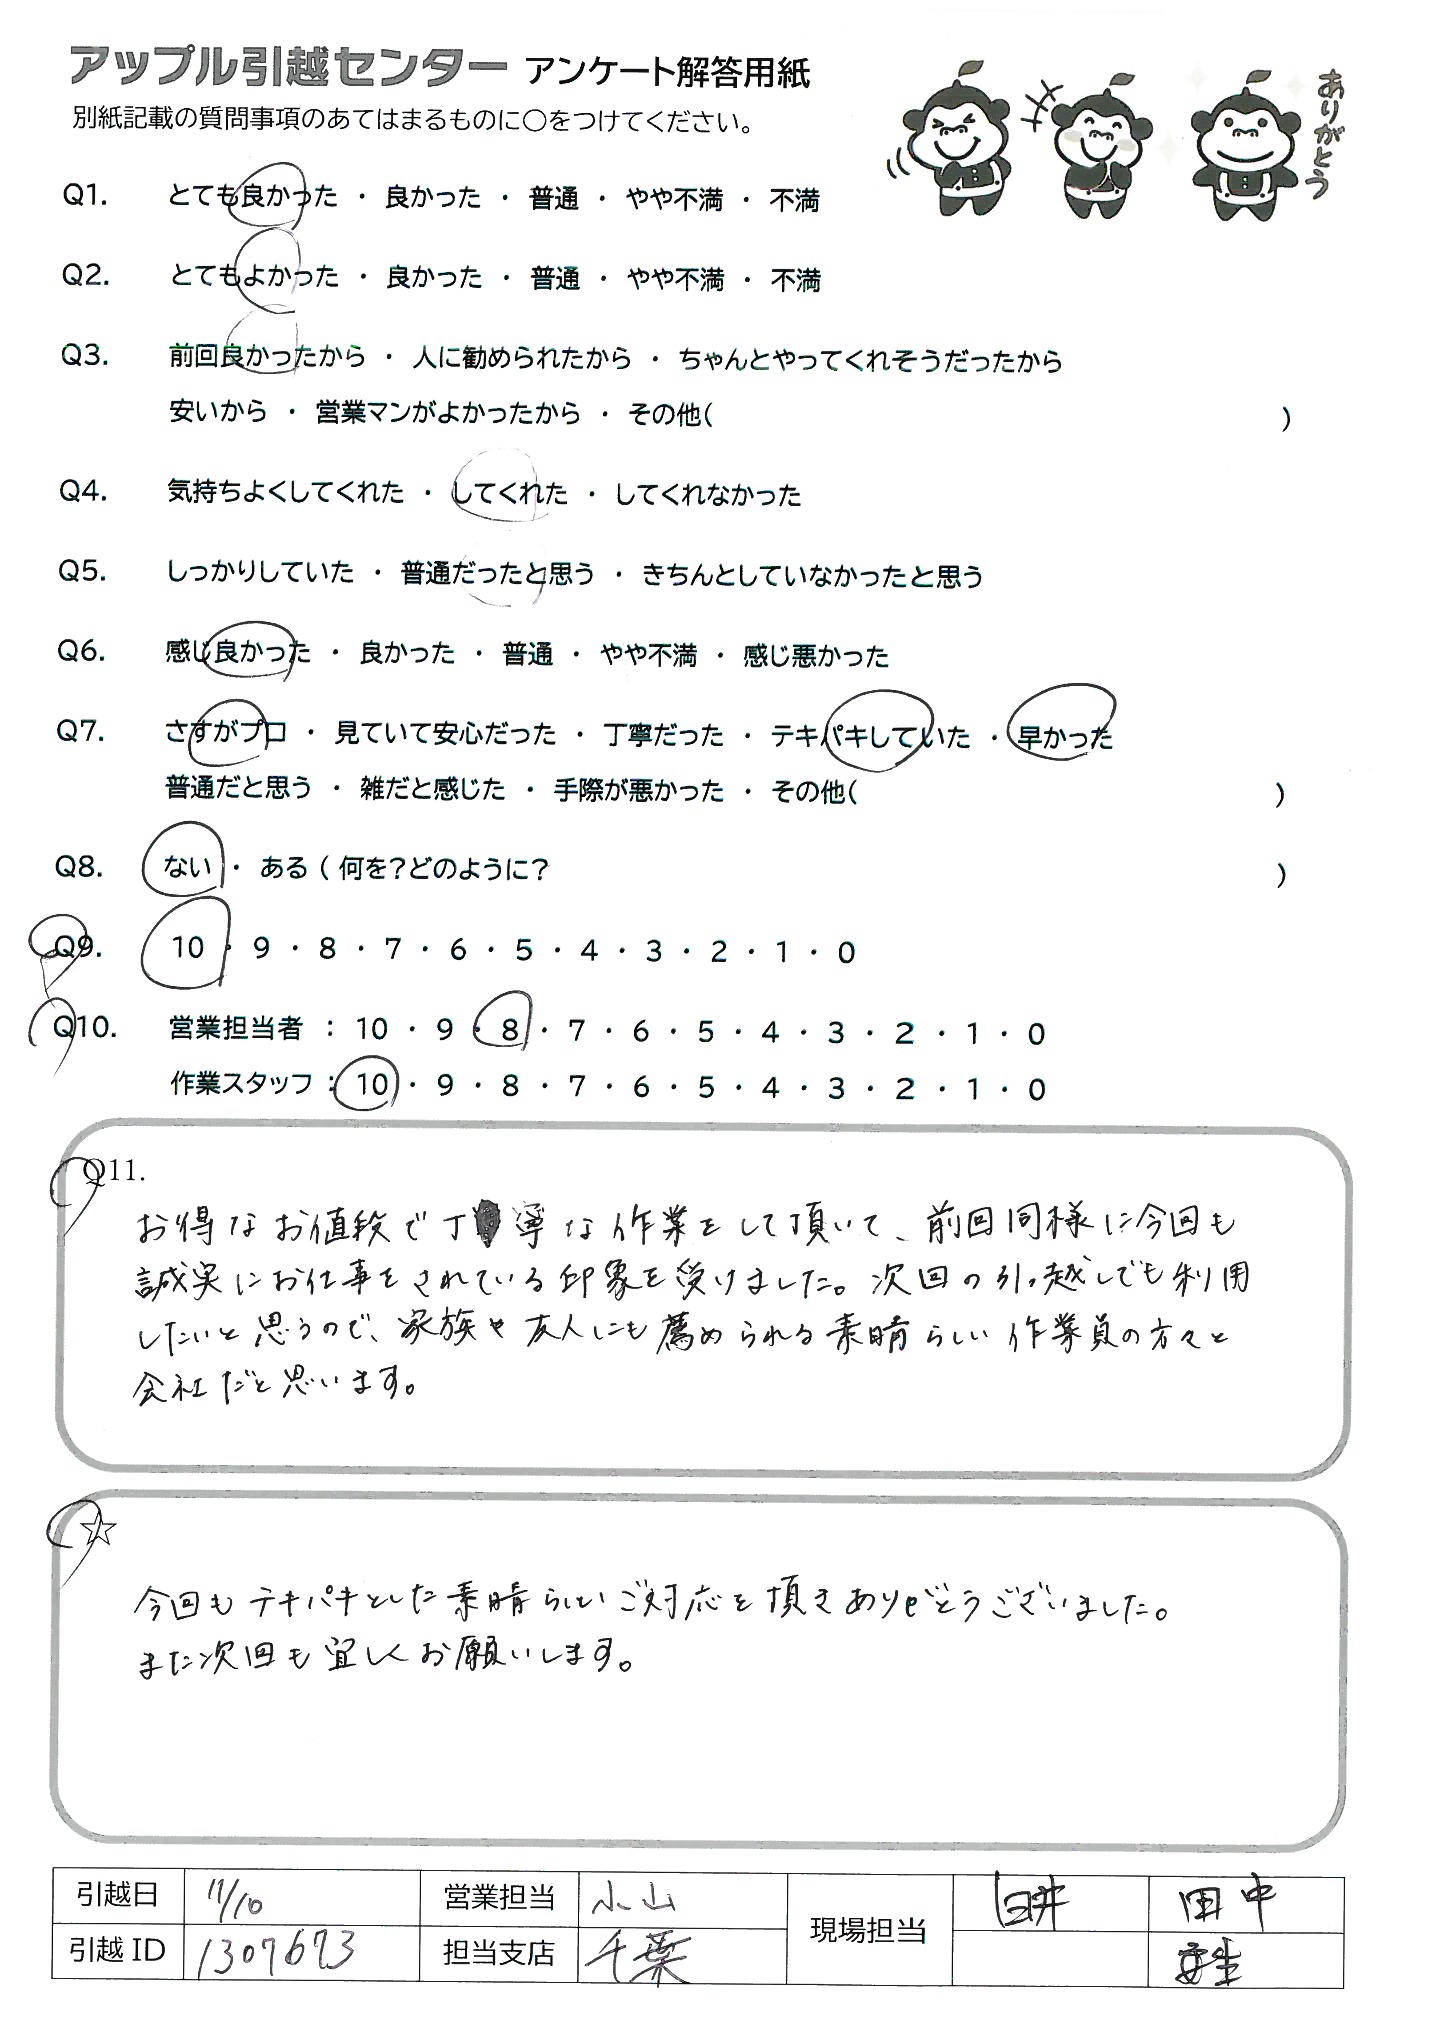 アップル引越センター アンケート解答用紙
ありがとう
別紙記載の質問事項のあてはまるものに○をつけてください。
Q1. とても良かった ・ 良かった ・ 普通 ・ やや不満 ・ 不満
Q2. とてもよかった ・ 良かった ・ 普通 ・ やや不満 ・ 不満
Q3. 前回良かったから ・ 人に勧められたから ・ ちゃんとやってくれそうだったから
安いから ・ 営業マンがよかったから ・ その他( )
Q4. 気持ちよくしてくれた ・ してくれた ・ してくれなかった
Q5. しっかりしていた ・ 普通だったと思う ・ きちんとしていなかったと思う
Q6. 感じ良かった ・ 良かった ・ 普通 ・ やや不満 ・ 感じ悪かった
Q7. さすがプロ ・ 見ていて安心だった ・ 丁寧だった ・ テキパキしていた ・ 早かった
普通だと思う ・ 雑だと感じた ・ 手際が悪かった ・ その他( )
Q8. ない ・ ある ( 何を?どのように? )
Q9. 10 ・ 9 ・ 8 ・ 7 ・ 6 ・ 5 ・ 4 ・ 3 ・ 2 ・ 1 ・ 0
Q10. 営業担当者 : 10 ・ 9 ・ 8 ・ 7 ・ 6 ・ 5 ・ 4 ・ 3 ・ 2 ・ 1 ・ 0
作業スタッフ : 10 ・ 9 ・ 8 ・ 7 ・ 6 ・ 5 ・ 4 ・ 3 ・ 2 ・ 1 ・ 0
Q11.
お得なお値段で丁寧な作業をして頂いて、前回同様に今回も
誠実にお仕事をされている印象を受けました。次回の引っ越しでも利用
したいと思うので、家族や友人にも薦められる素晴らしい作業員の方々と
会社だと思います。
☆
今回もテキパキとした素晴らしいご対応を頂きありがとうございました。
また次回も宜しくお願いします。
引越日 11/10 営業担当 小山 現場担当 臼井 田中
引越ID 1307673 担当支店 千葉